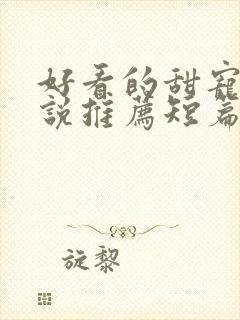 好看的甜宠
說推薦短篇
旋黎